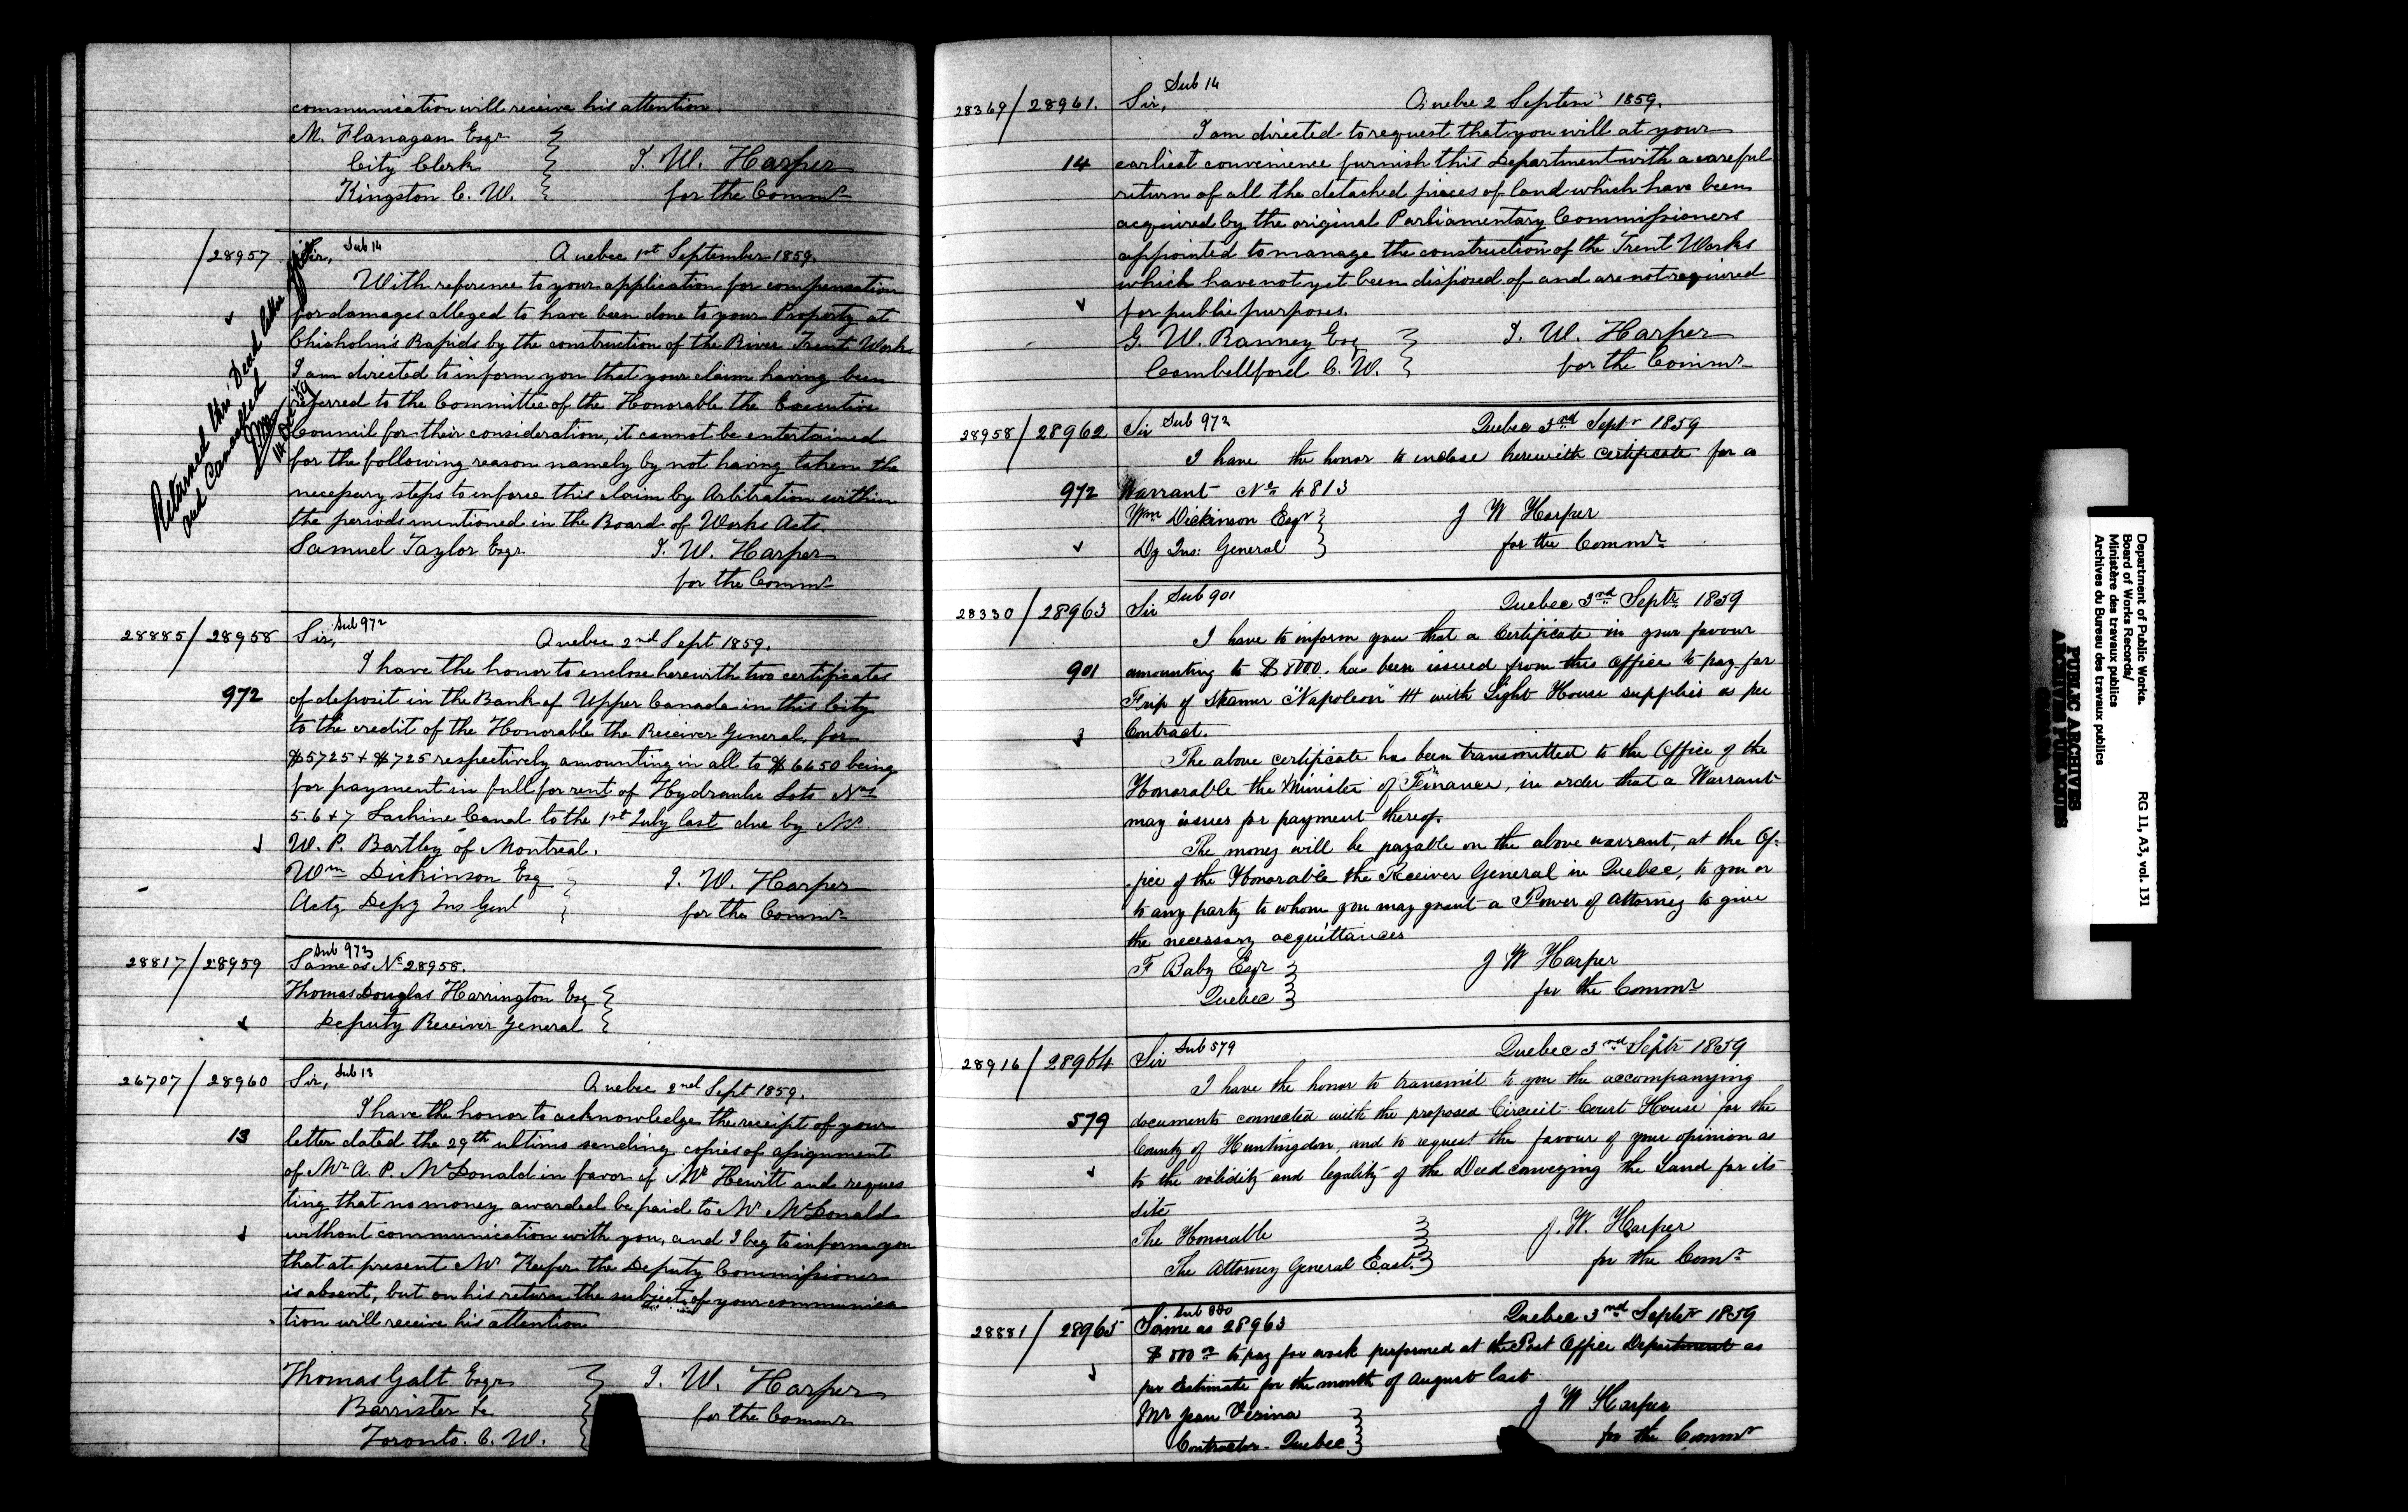 communication will receive his attention.
M. Flanagan Esqr
City Clerk
Kingston C. W.
J. W. Harper
for the Commr
/28957
Sir, Sub 14 Quebec 1st September 1859.
With reference to your application for compensation
for damages alleged to have been done to your Property at
Chisholm's Rapids by the construction of the River Trent Works
I am directed to inform you that your claim having been
referred to the Committee of the Honorable the Executive
Council for their consideration, it cannot be entertained
for the following reason namely by not having taken the
necessary steps to enforce this claim by Arbitration within
the periods mentioned in the Board of Works Acts.
Samuel Taylor Esqr J. W. Harper
for the Commr
Returned thro' Dead letter Office
and Cancelled
14 Dec /59
28885/28958 Sir, Sub 972 Quebec 2nd Sept 1859.
I have the honor to enclose herewith two certificates
972 of deposit in the Bank of Upper Canada in this City
to the credit of the Honorable the Receiver General, for
$5725 + $725 respectively amounting in all to $6650 being
for payment in full for rent of Hydraulic Lots Nos
5. 6 + 7 Lachine Canal to the 1st July last due by Mr
W. P. Bartley of Montreal.
Wm Dickinson Esq J. W. Harper
Actg Depy Ins Genl for the Commr
28817/28959 Sub 973
Same as No 28958.
Thomas Douglas Harrington Esq
Deputy Receiver General
26707/28960 Sir, Sub 13 Quebec 2nd Sept 1859.
I have the honor to acknowledge the receipt of your
13 letter dated the 29th ultimo sending copies of assignment
of Mr A. P. McDonald in favor of Mr Hewitt and reques
ting that no money awarded be paid to Mr McDonald
without communication with you, and I beg to inform you
that at present Mr Keefer the Deputy Commissioner
is absent, but on his return the subject of your communica
tion will receive his attention
Thomas Galt Esqr J. W. Harper
Barrister &c for the Commr
Toronto. C. W.
28369/28961. Sir, Sub 14 Quebec 2 Septemr 1859.
I am directed to request that you will at your
14 earliest convenience furnish this Department with a careful
return of all the detached pieces of land which have been
acquired by the original Parliamentary Commissioners
appointed to manage the construction of the Trent Works
which have not yet been disposed of and are not required
for public purposes.
G. W. Ranney Esq J. W. Harper
Cambellford C. W. for the Commr
28958/28962 Sir Sub 972 Quebec 3rd Septr 1859
I have the honor to enclose herewith certificate for a
972 Warrant No 4813
Wm Dickinson Esqr J W Harper
Dy Ins: General for the Commr
28330/28963 Sir Sub 901 Quebec 3rd Septr 1859
I have to inform you that a Certificate in your favour
901 amounting to $8000. has been issued from this Office to pay for
Trip of Steamer "Napoleon" III with Light House supplies as per
Contract.
The above certificate has been transmitted to the Office of the
Honorable the Minister of Finance, in order that a Warrant
may issue for payment thereof.
The money will be payable on the above warrant, at the Of-
fice of the Honorable the Receiver General in Quebec, to you or
to any party to whom you may grant a Power of Attorney to give
the necessary acquittances
F Baby Esqr J W Harper
Quebec for the Commr
28916/28964 Sir Sub 579 Quebec 3rd Septr 1859
I have the honor to transmit to you the accompanying
579 documents connected with the proposed Circuit Court House for the
County of Huntingdon, and to request the favour of your opinion as
to the validity and legality of the Deed conveying the Land for its
site
The Honorable J. W. Harper
The Attorney General East. for the Comr
28881/28965 Same as 28963 Quebec 3rd Septr 1859
to pay for work performed at the Post Office Department as
per Estimate for the month of August last
Mr Jean Vezina J W Harper
Contractor - Quebec for the Commr
Department of Public Works.
Board of Works Records/
Ministère des travaux publics
Archives du Bureau des travaux publics
RG 11, A3, vol. 131
PUBLIC ARCHIVES
ARCHIVES PUBLIQUES